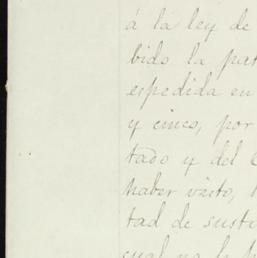 á la ley de
bido la pat
espedida en
y cinco, por
tado y del
haber visto,
tad de susti
cual no le